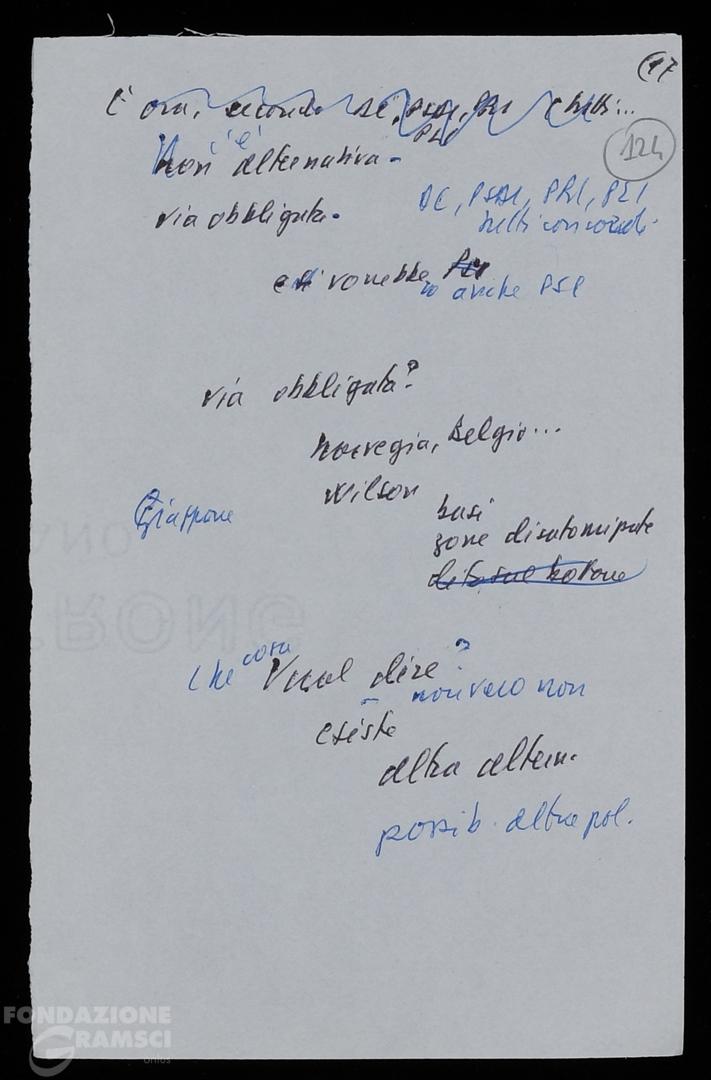 (17
124
E ora, secondo DC, PSDI, PRI e tutti...
PLI
Non c'è alternativa -
via obbligata.
DC, PSDI, PRI, PLI
tutti concordi.
e si vorrebbe
anche PSI
via obbligata?
Norvegia, Belgio...
Wilson
Giappone
basi
zone disatomizzate
Che cosa vuol dire?
- non vero non
esiste
altra altern.
possib. altra pol.
FONDAZIONE
GRAMSCI
onlus